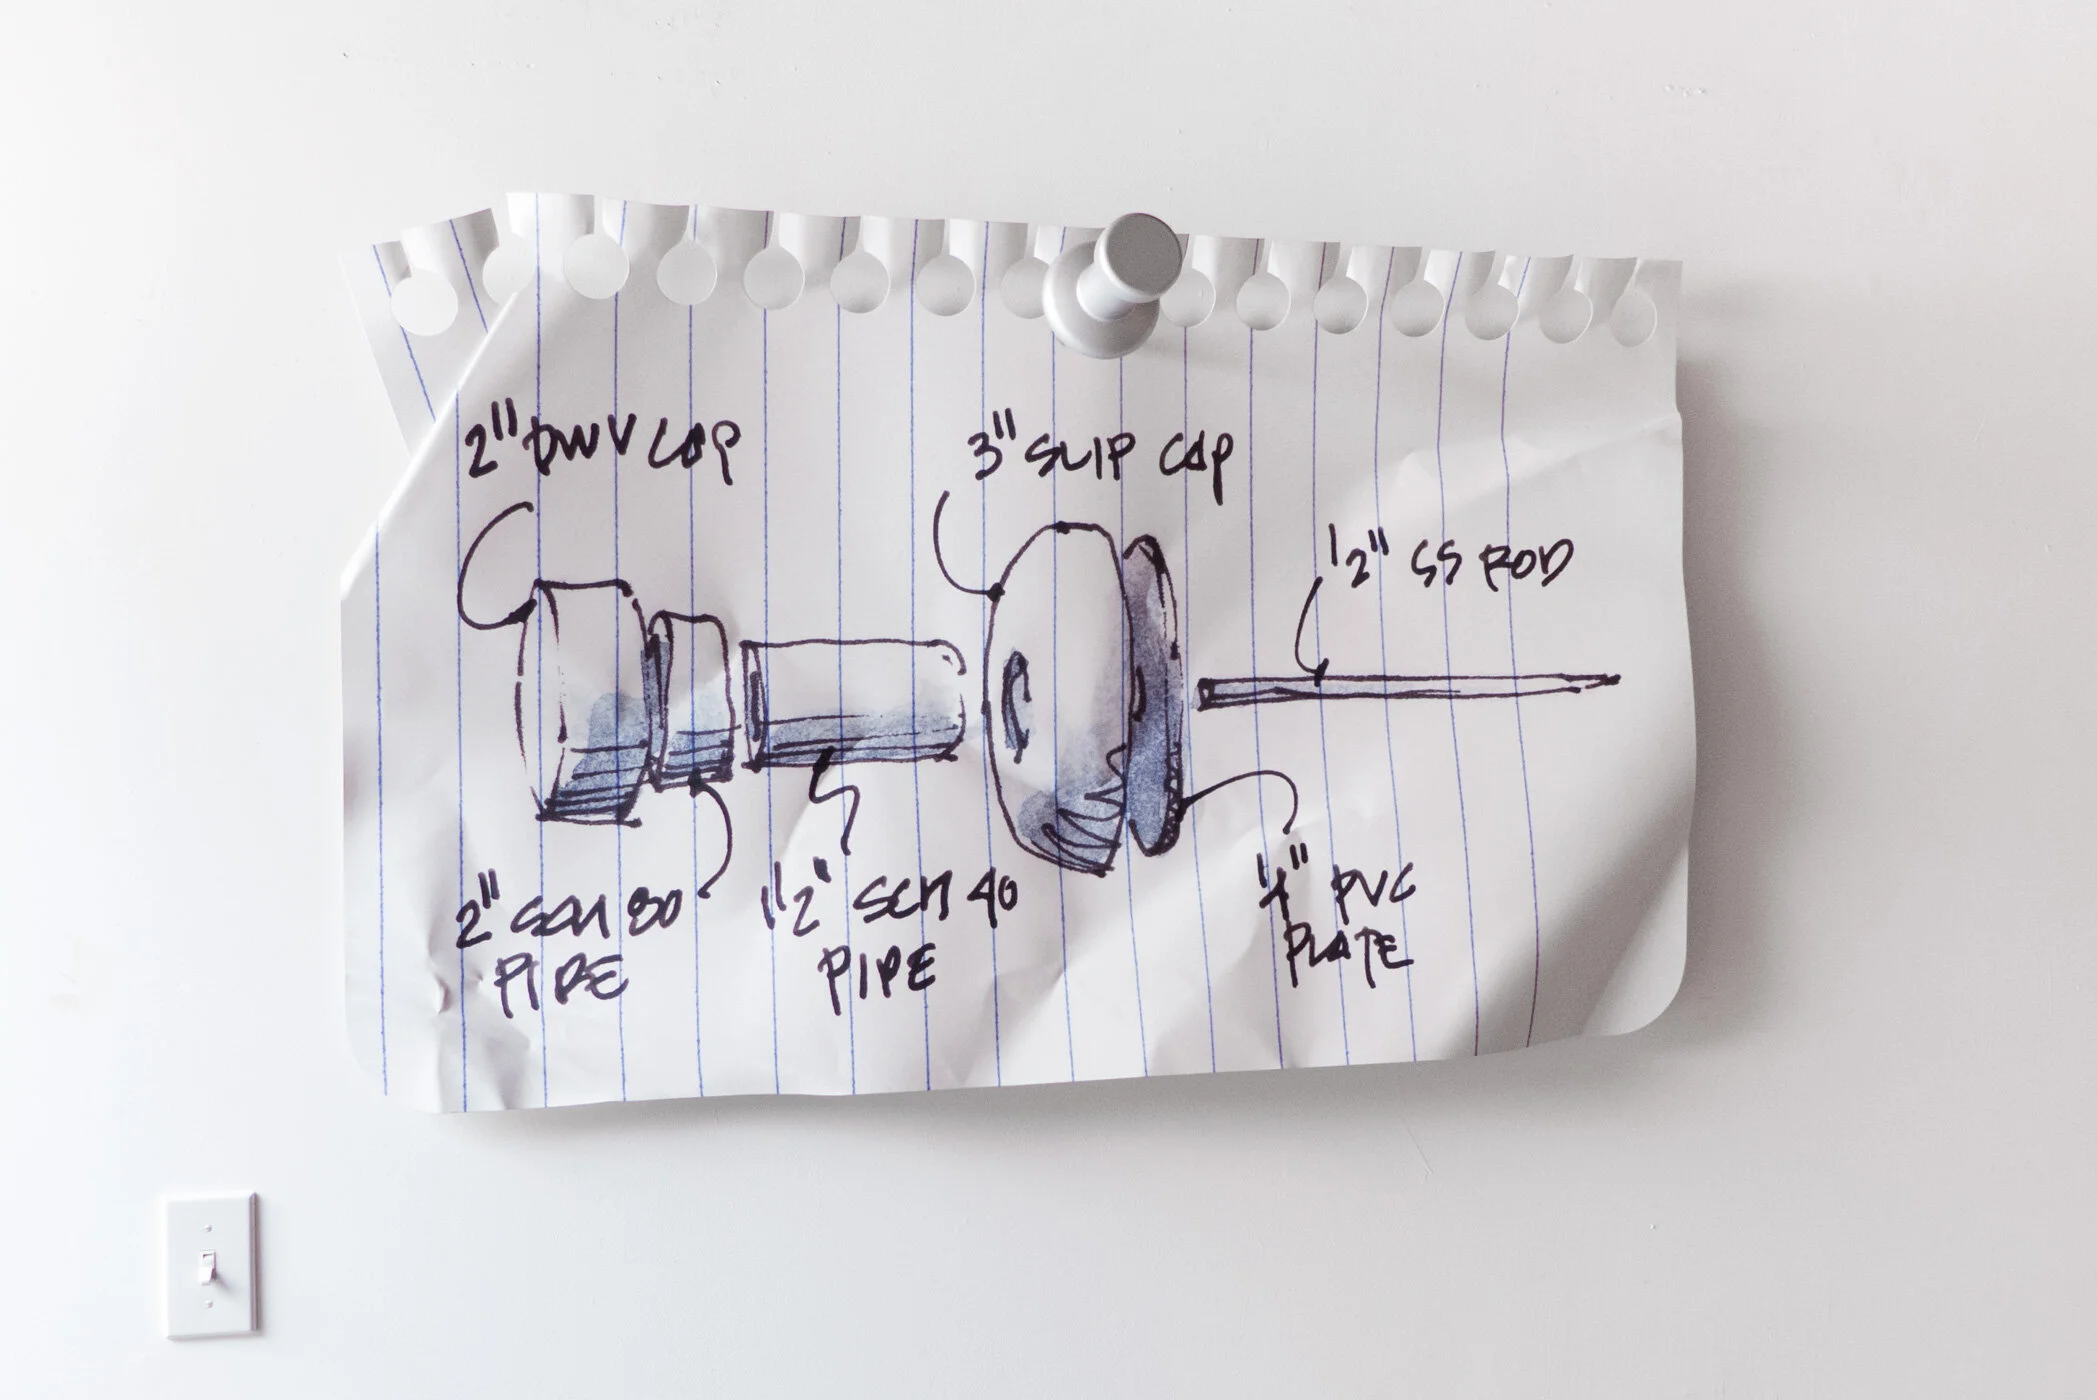 2" DWV CAP
3" SLIP CAP
1/2" SS ROD
2" SCH 80
PIPE
1 1/2" SCH 40
PIPE
1/4" PVC
PLATE